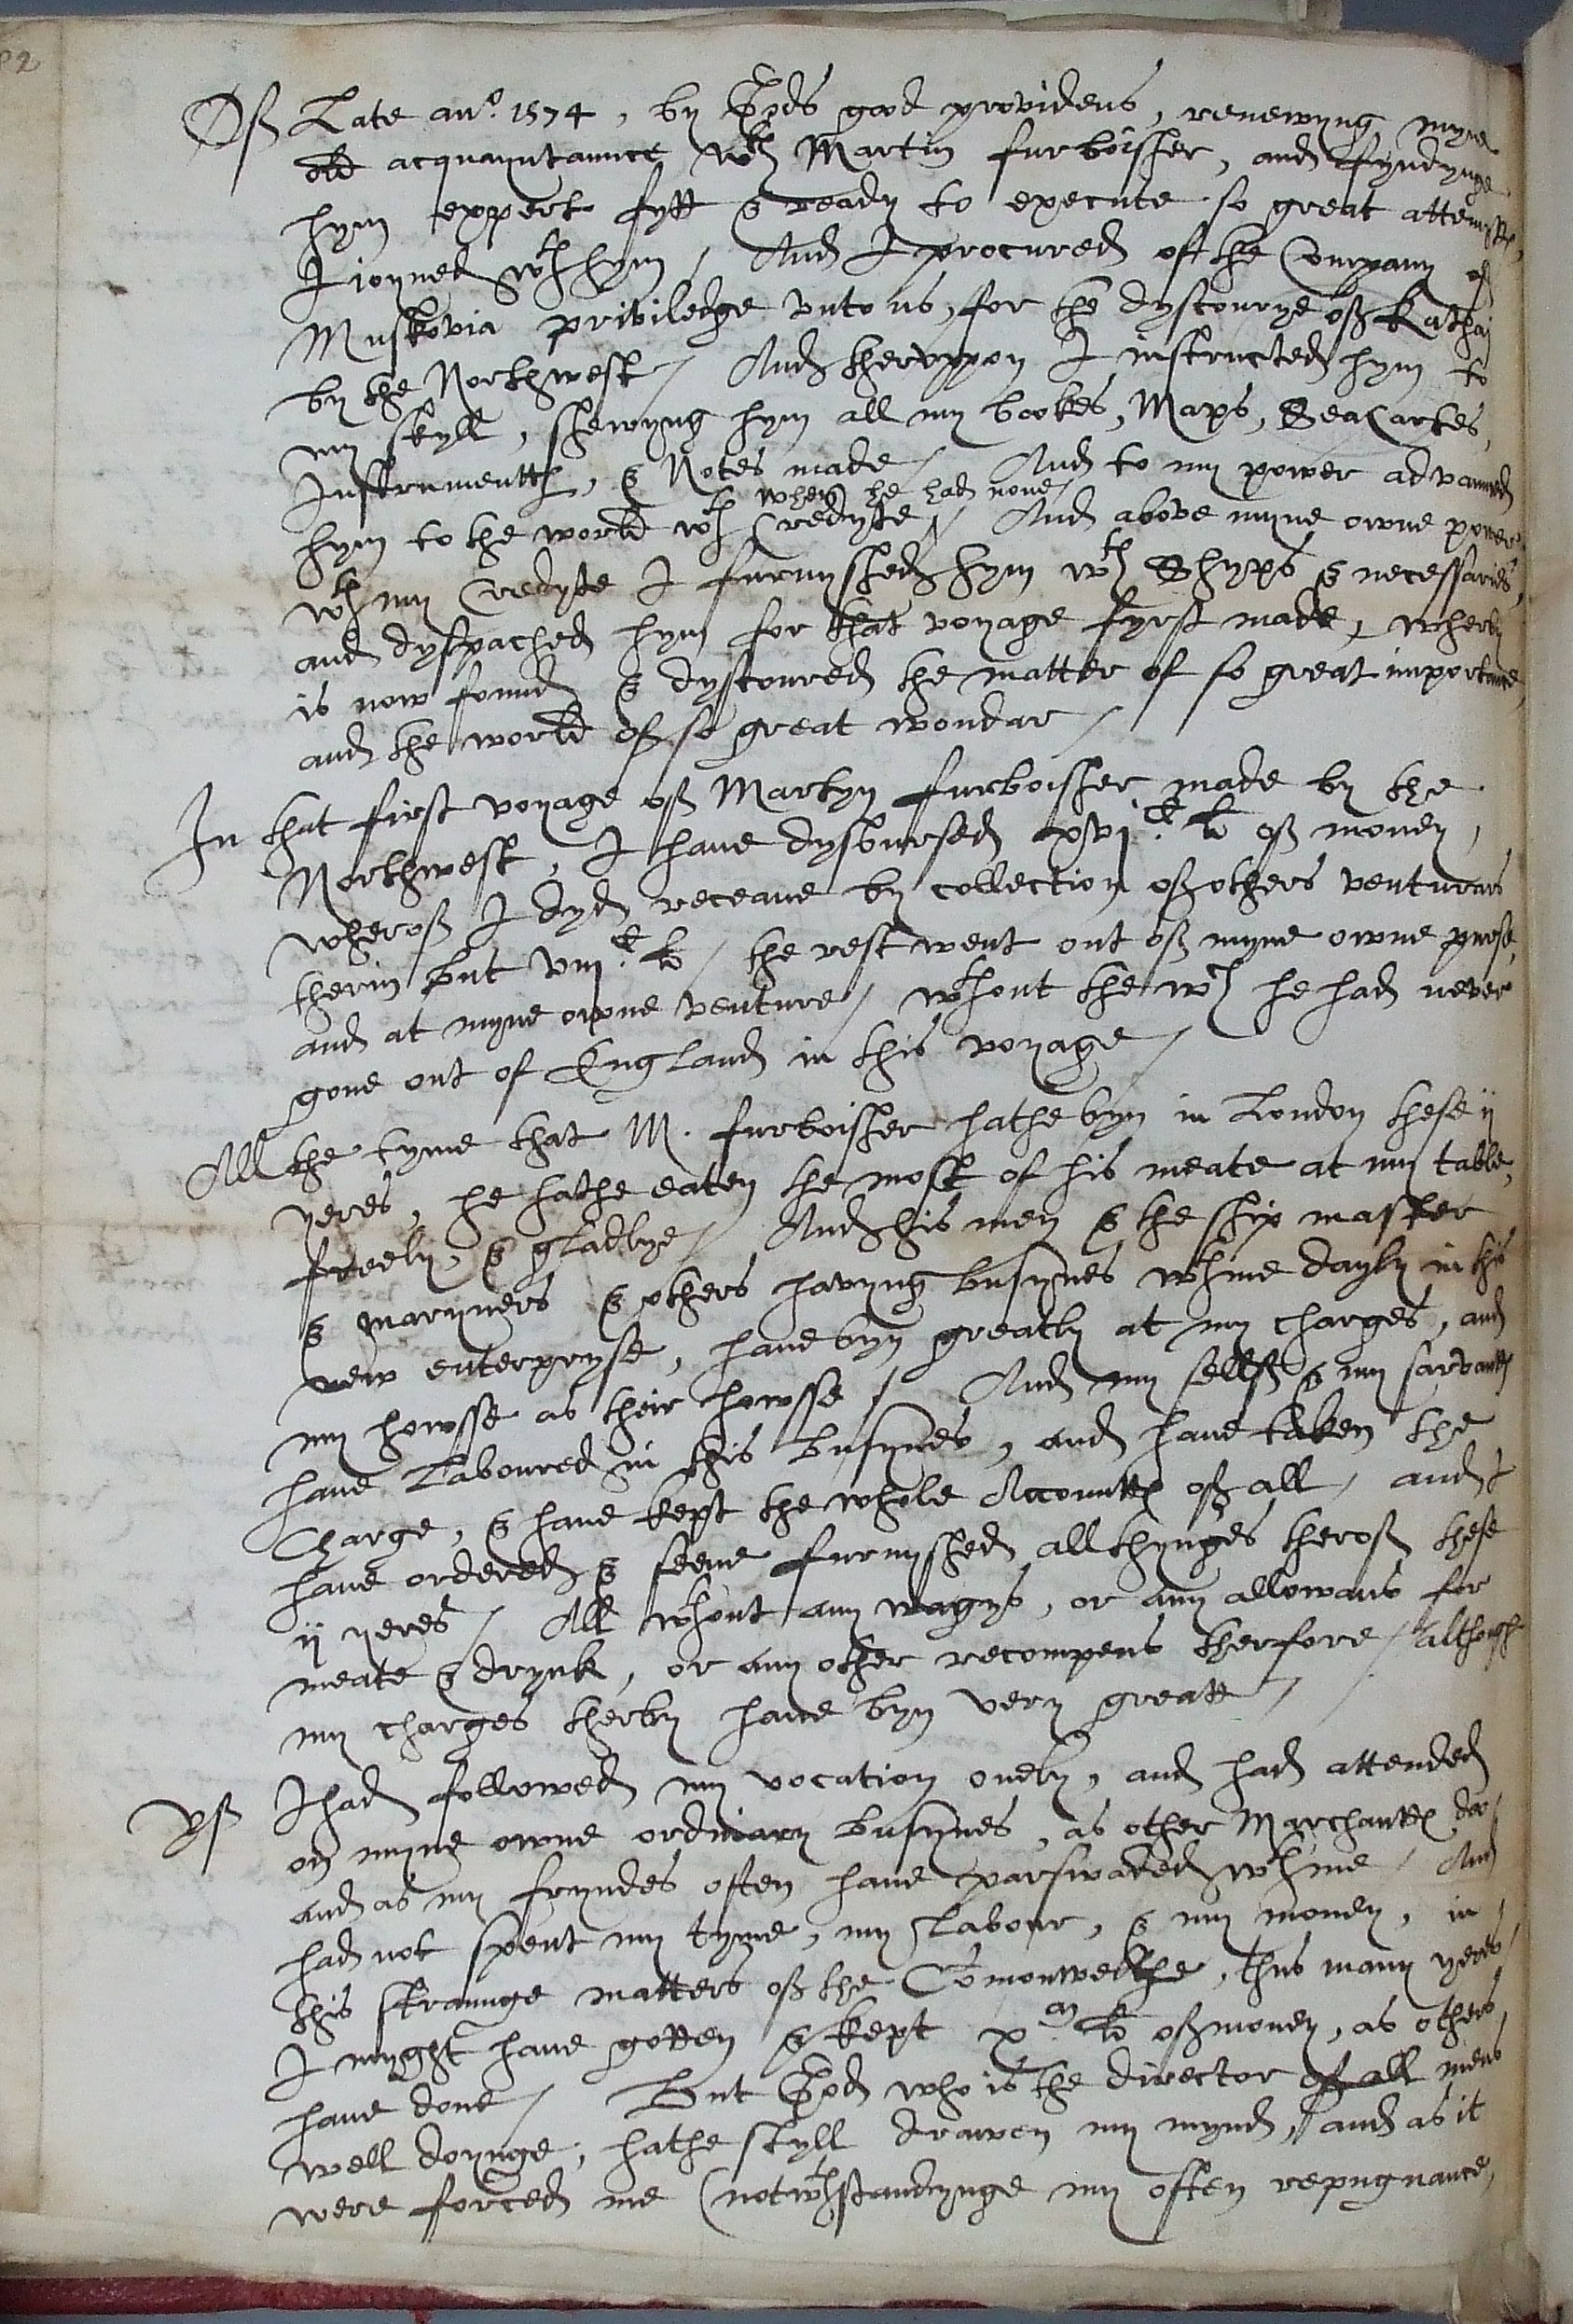 82
Off Late an⁰. 1574, by Gods good providens, renewyng myne
old acquayntaunce wth Martin furboisher, and fyndynge
hym expert fytt & ready to execute so great attemptes,
I joyned wth hym / And I procured of the Company of
Muskovia priviledge unto us, for the dyscourye off Kathaj
by the Northwest / And theruppon I instructed hym to
my skyll, shewyng hym all my bookes, Maps, Sea Cartes,
Instrumentts, & Notes made / And to my power advaunced
when he had none /
hym to the world wth Credyte / And above myne owne power
wth my Credyte I furnyshed hym wth Shyps & necessaries,
and dyspached hym for that voyage fyrst made, wherby
is now found & dyscoured the matter of so great importance,
and the world off so great wondar /
In that first voyage off Martyn furboisher made by the
Northwest, I have dysbursed xvjC. li off money,
wheroff I dyd receave by collection off others venturars
therin But viijC. li / the rest went out off myne owne purse,
and at myne owne venture / wthout the wch he had never
gone out of England in this voyage /
All the tyme that M. furboisher hathe byn in London these ij
yeres, he hathe eaten the most of his meate at my table,
freely, & gladlye / And his men & the ship master
& maryners & others havyng busynes wth me dayly in this
new enterpryse, have byn greatly at my charges, and
my howsse as their howsse / And my sellff & my sarvantts
have Laboured in this Busynes, and have taken the
Charge, & have kept the whole Accountts off all, and I
have ordered & seene furnyshed all thynges theroff these
ij yeres / All wthout any wagys, or any allowans for
meate & drynk, or any other recompens therfore / although
my charges therby have byn very greatt /
Yff I had followed my vocation onely, and had attended
on myne owne ordinary Busynes, as other Marchantts doo /
and as my fryndes often have parswaded wth me / And
had not spent my tyme, my Labour, & my money, in
this straunge matters off the Comonwelthe, thus many yeres /
I myght have gotten & kept xM. li off money, as others
have done / But God who is the director of all mens
well doynge, hathe styll drawen my mynd, and as it
were forced me (notwthstandynge my often repugnance,